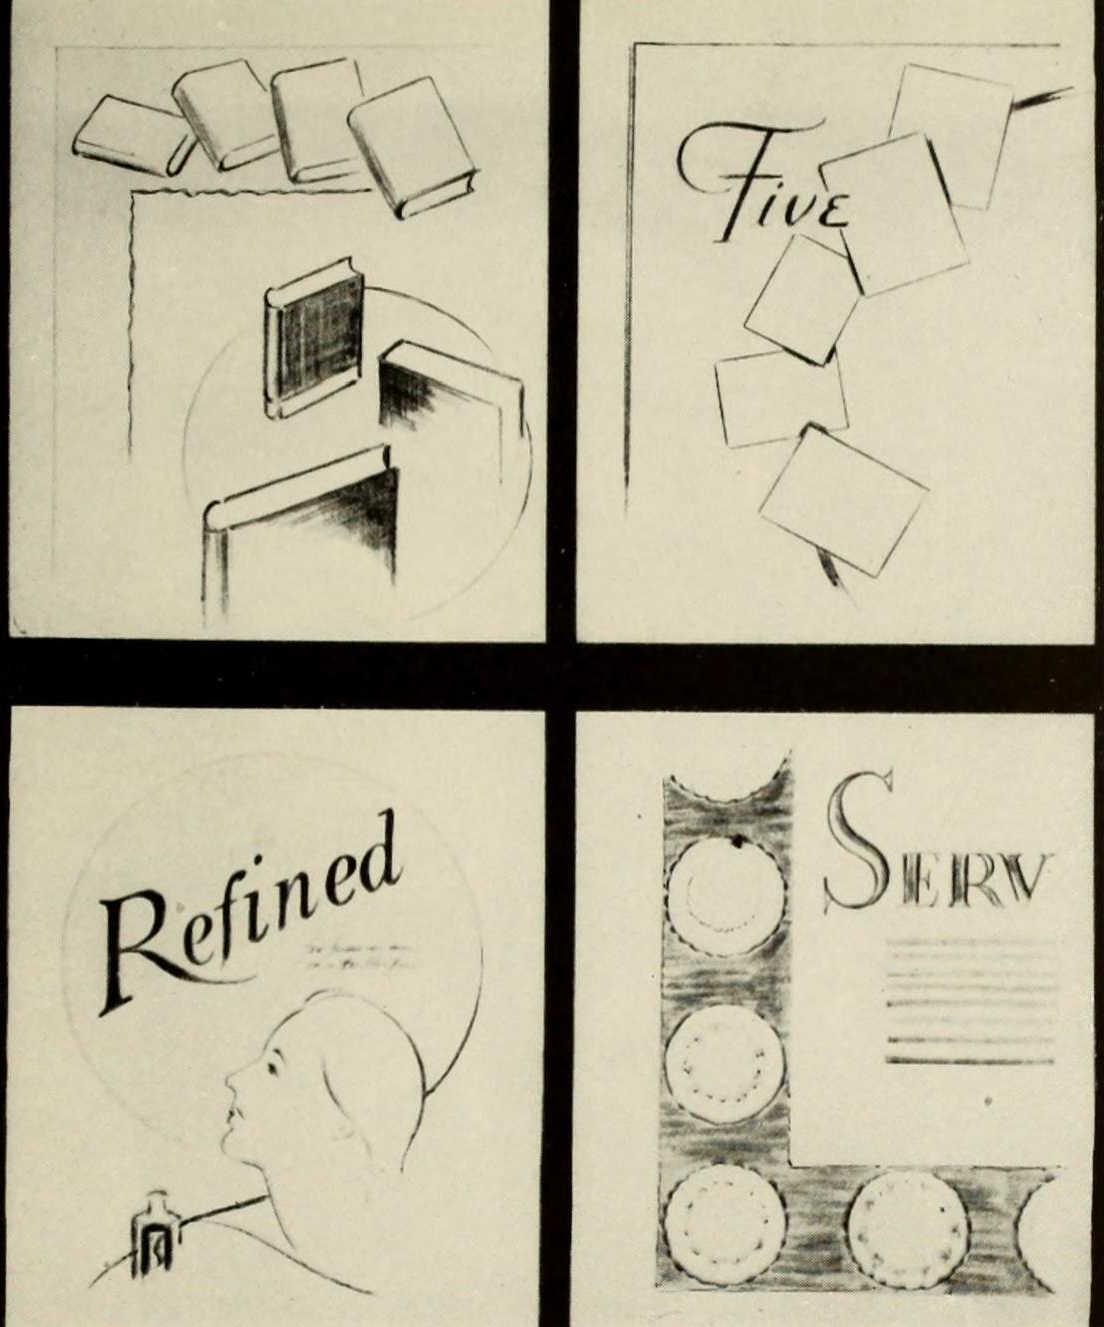 Five
Refined
SERV